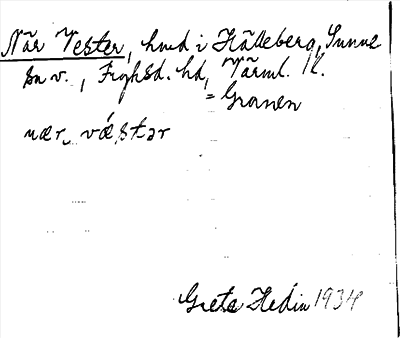 När Vester, hmd i Hälleberg, Sunne
sn v., Fryksd. hd, Värml. l.
= Granen
nær vǽstər
Greta Hedin 1934